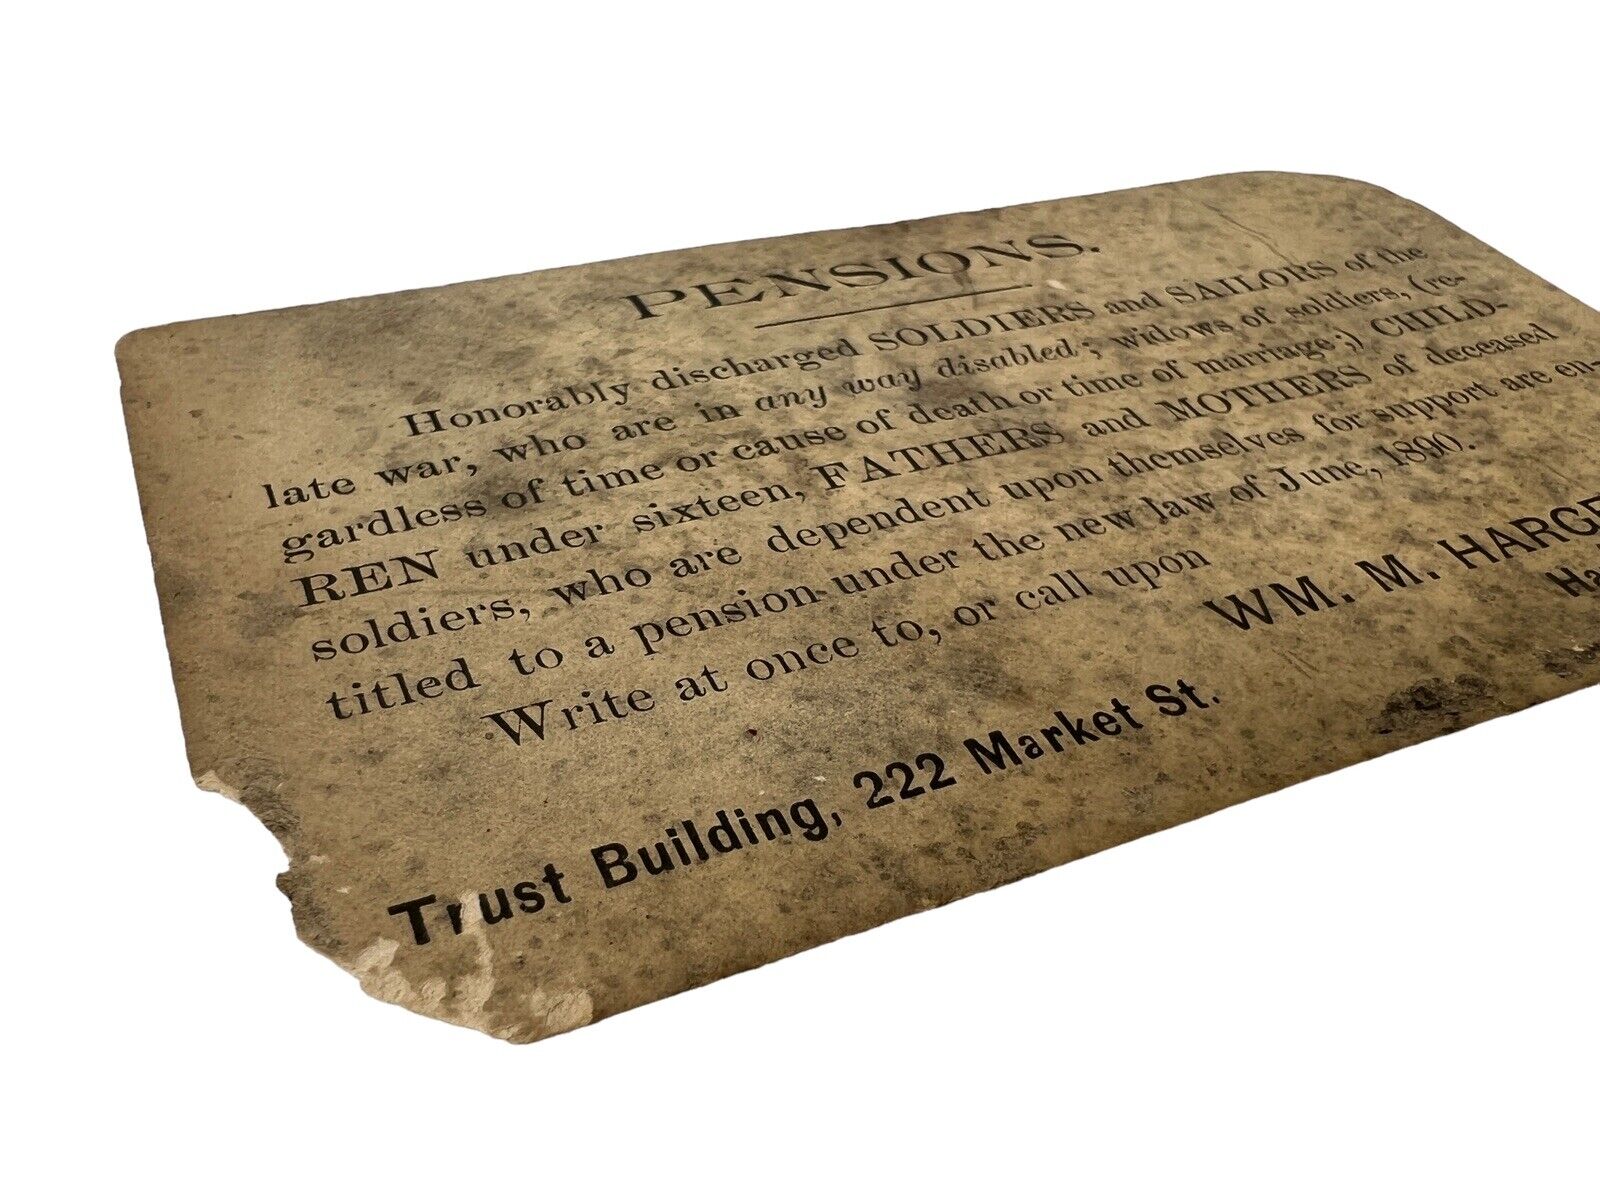 PENSIONS.
Honorably discharged SOLDIERS and SAILORS of the
late war, who are in any way disabled; widows of soldiers, (re-
gardless of time or cause of death or time of marriage;) CHILD-
REN under sixteen, FATHERS and MOTHERS of deceased
soldiers, who are dependent upon themselves for support are en-
titled to a pension under the new law of June, 1890.
Write at once to, or call upon
WM. M. HARGE
Ha
Trust Building, 222 Market St.